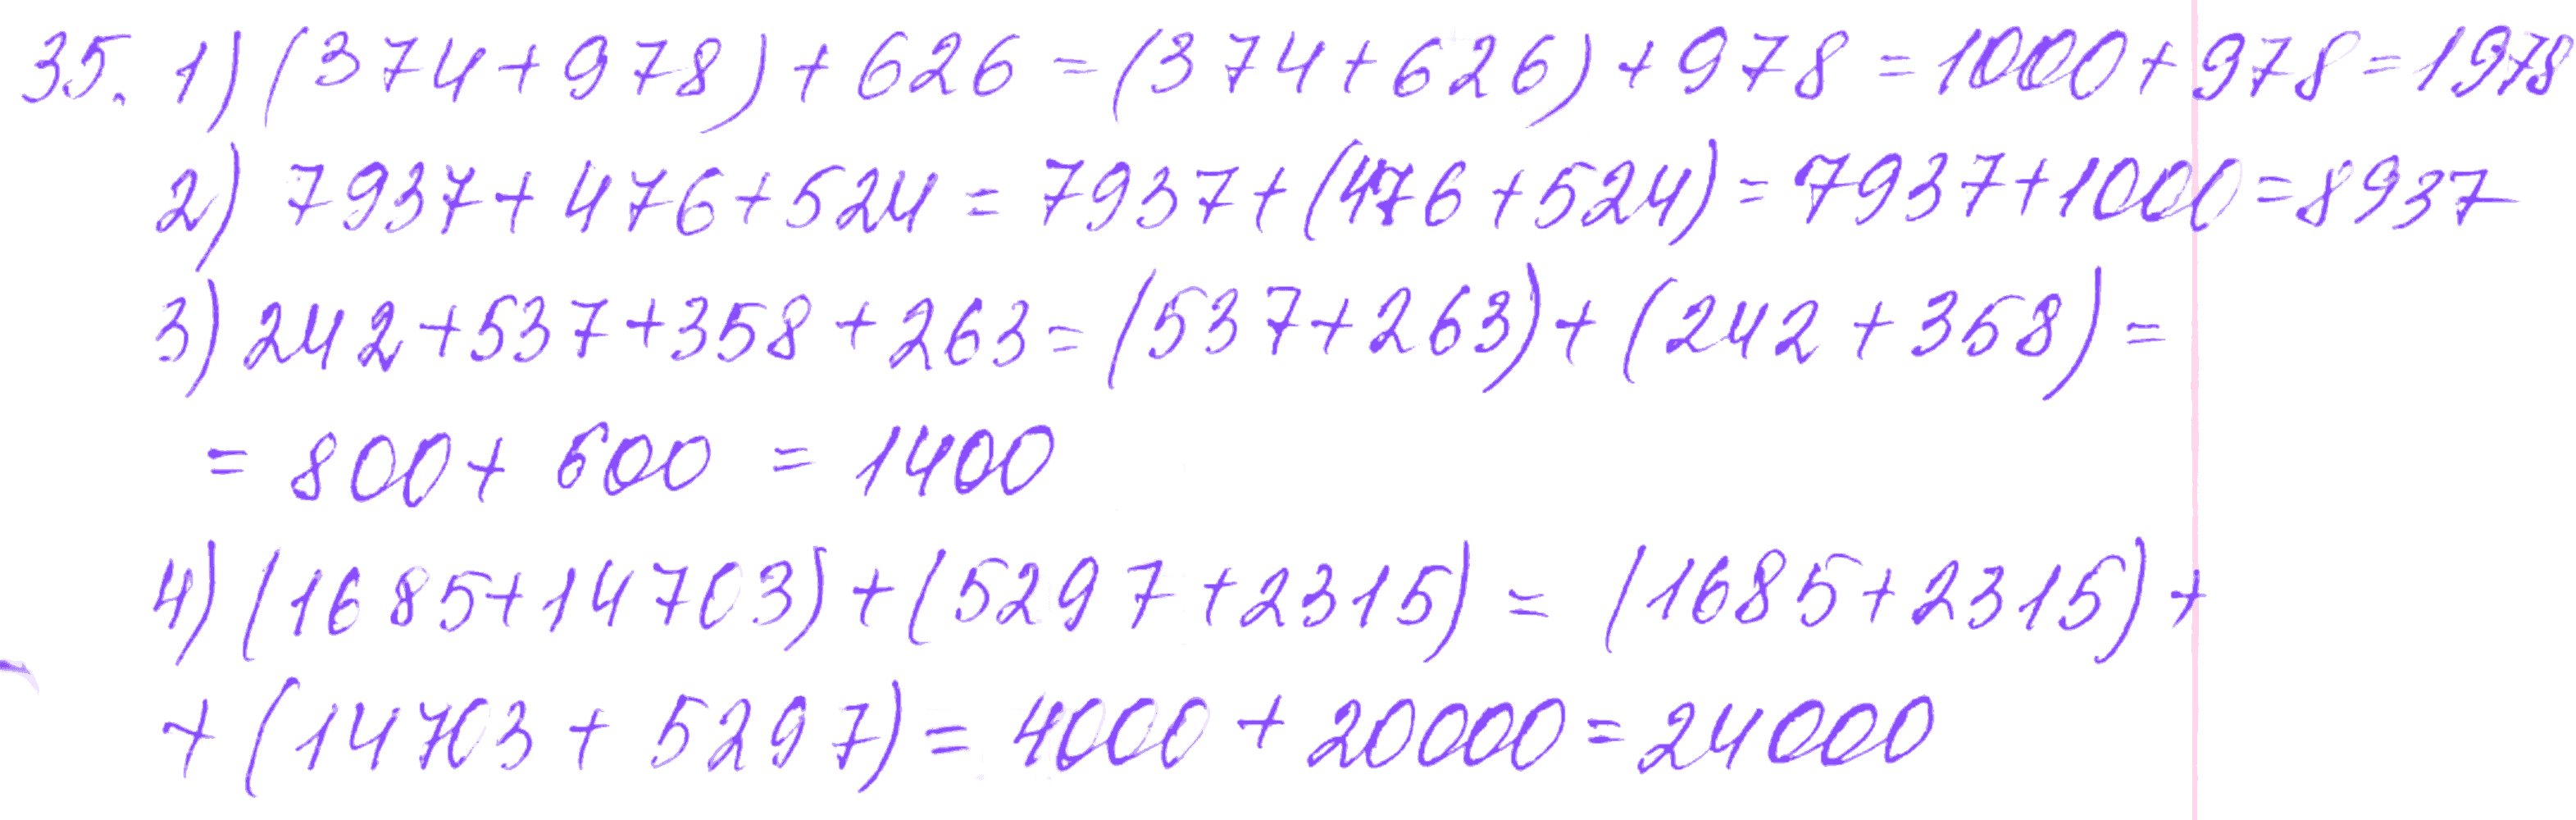 35. 1) (374+978)+626=(374+626)+978=1000+978=1978
2) 7937+476+524=7937+(476+524)=7937+1000=8937
3) 242+537+358+263=(537+263)+(242+358)=
=800+600=1400
4) (1685+14703)+(5297+2315)=(1685+2315)+
+(14703+5297)=4000+20000=24000